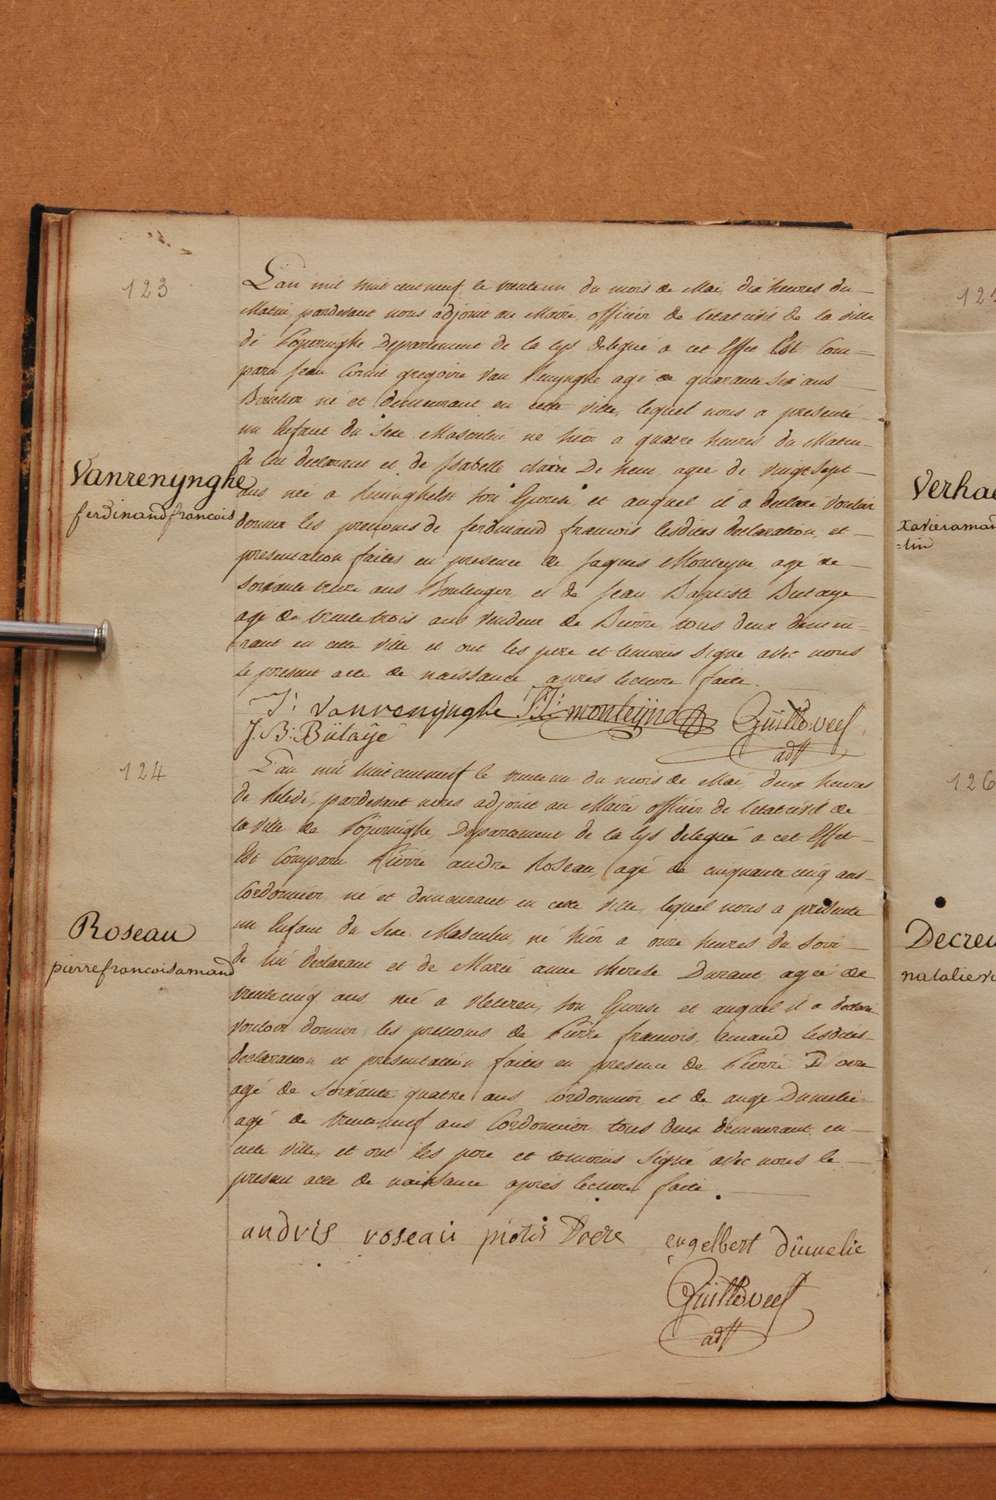 123
L'an mil huit cent neuf le trente un du mois de Mai dix heures du
Matin, pardevant nous adjoint au Maire officier de l'etat civil de la ville
de Poperinghe Departement de la Lys delegué a cet Effet Est Com-
paru Jean Corneil gregoire Van Renynghe agé de quarante six ans
ne et demeurant en cette ville, lequel nous a presenté
un Enfant du Sexe Masculin né hier a quatre heures du Matin
de lui declarant et de Isabelle claire De heu agée de vingt sept
Vanrenynghe
ferdinand francois
ans née a Reninghelst son Epouse et auquel il a declaré vouloir
donner les prenoms de ferdinand francois lesdites declaration et
presentation faites en presence de Jaques Monteyne agé de
soixante ans Boulenger et de Jean Baptiste Bulaye
agé de trente trois ans vendeur de Bierre tous deux demeu-
rant en cette ville et ont les pere et temoins signé avec nous
le present acte de naissance apres lecture faite.
J: vanrenynghe J: J: monteyne Guille veef
J: B: Bülaÿe adjt
124
L'an mil huit cent neuf le trente un du mois de Mai, deux heures
de Relevé, pardevant nous adjoint au Maire officier de l'etat civil de
la ville de Poperinghe Departement de la Lys delegué a cet Effet
Est Comparu Pierre andre Roseau, agé de cinquante cinq ans
Cordonnier né et demeurant en cette ville, lequel nous a presenté
Roseau
pierre francois amand
un Enfant du Sexe Masculin, né hier a onze heures du Soir
de lui declarant et de Marie anne therese Durant, agée de
trente cinq ans née a Vleteren, son Epouse et auquel il a declaré
vouloir donner les prenoms de Pierre francois, amand lesdites
declaration et presentation faites en presence de Pierre D'oere
agé de soixante quatre ans Cordonnier et de ange Dumelie
agé de trente neuf ans Cordonnier tous deux demeurant en
cette ville, et ont les pere et temoins signé avec nous le
present acte de naissance apres lecture faite.
andris roseau pieter Doere engelbert dumelie
Guille veef
adjt
Verhae
xavier aman
=tin
126
Decreu
natalie v